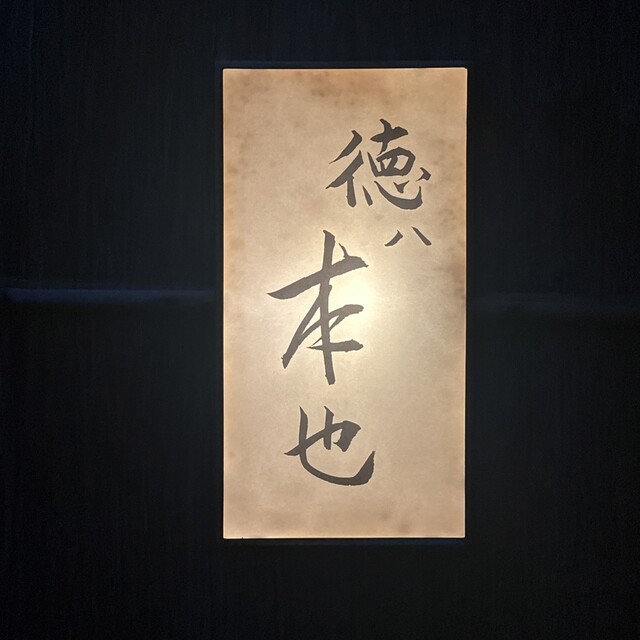 徳八
本也